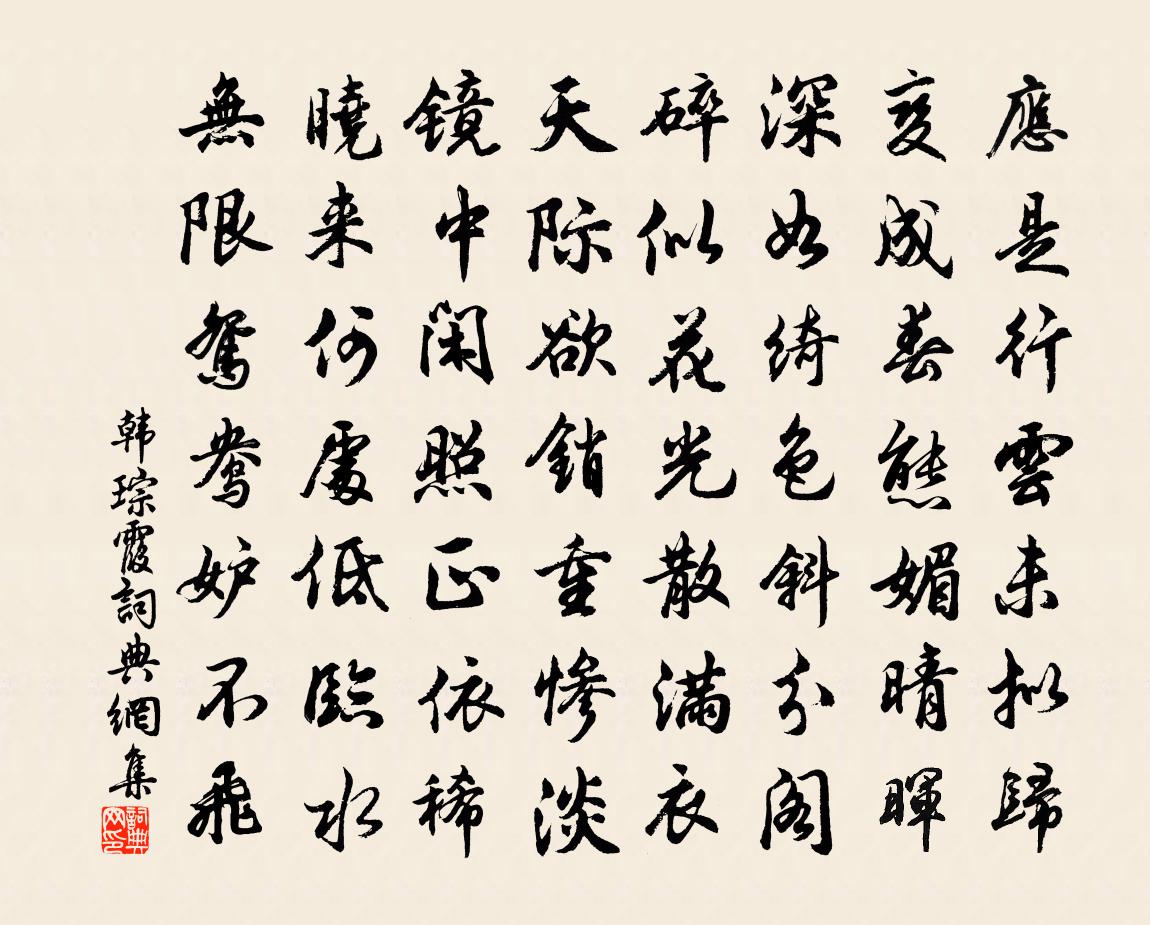 應是行雲未拟歸
变成春態媚晴暉
深如绮色斜分阁
碎似花光散满衣
天际欲銷重慘淡
镜中闲照正依稀
曉来何處低臨水
無限鴛鴦妒不飛
韩琮霞詞典網集
詞典网印